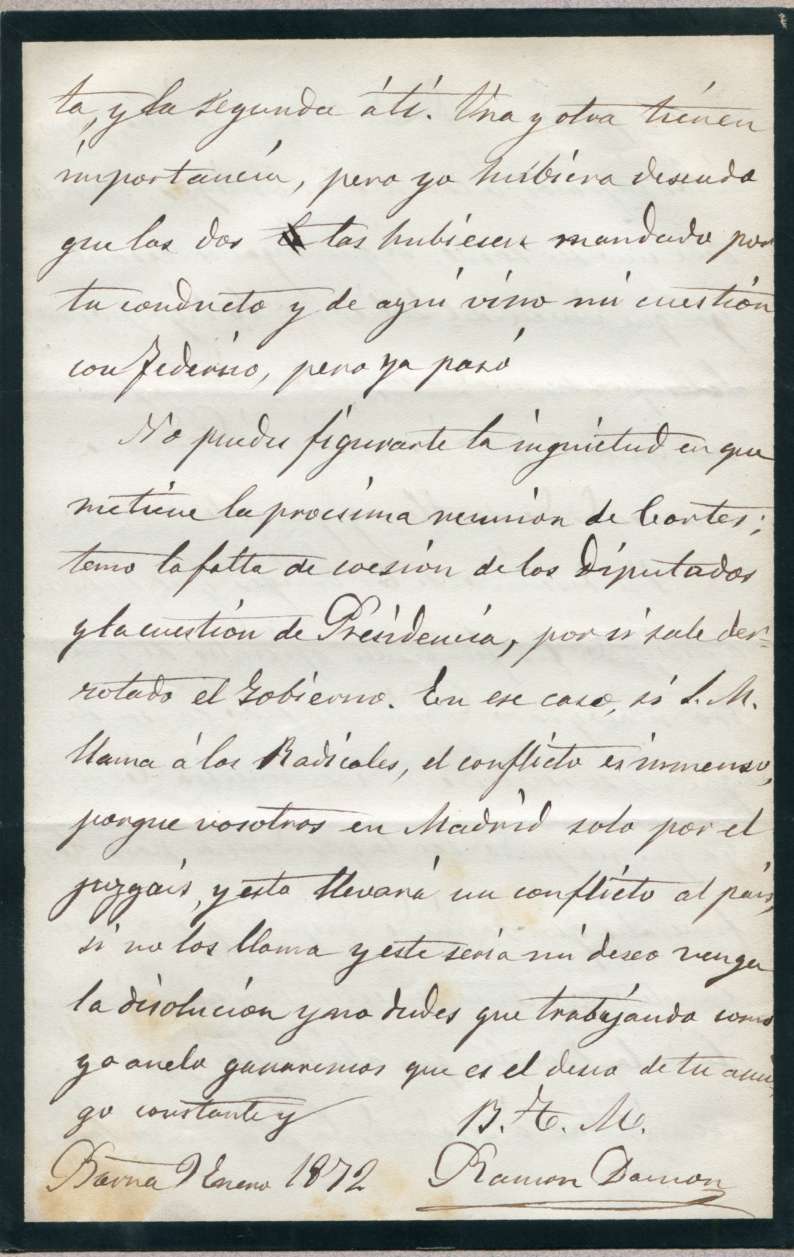 ta, y la segunda á ti. Una y otra tienen
importancia, pero yo hubiera deseado
que las dos las hubiesen mandado por
tu conducto y de aqui vino mi cuestión
con Federico, pero ya pasó
No puedes figurarte la inquietud en que
me tiene la procsima reunion de Cortes;
temo la falta de coesión de los Diputados
y la cuestión de Presidencia, por si sale der-
rotado el Gobierno. En ese caso, si S. M.
llama á los Radicales, el conflicto es inmenso,
porque vosotros en Madrid solo por el
juzgais, y esto llevará un conflicto al pais,
si no los llama y este seria mi deseo venga
la disolución y no dudes que trabajando como
yo anelo ganaremos que es el deseo de tu ami-
go constante y
B. T. M.
Barna 9 Enero 1872 Ramon